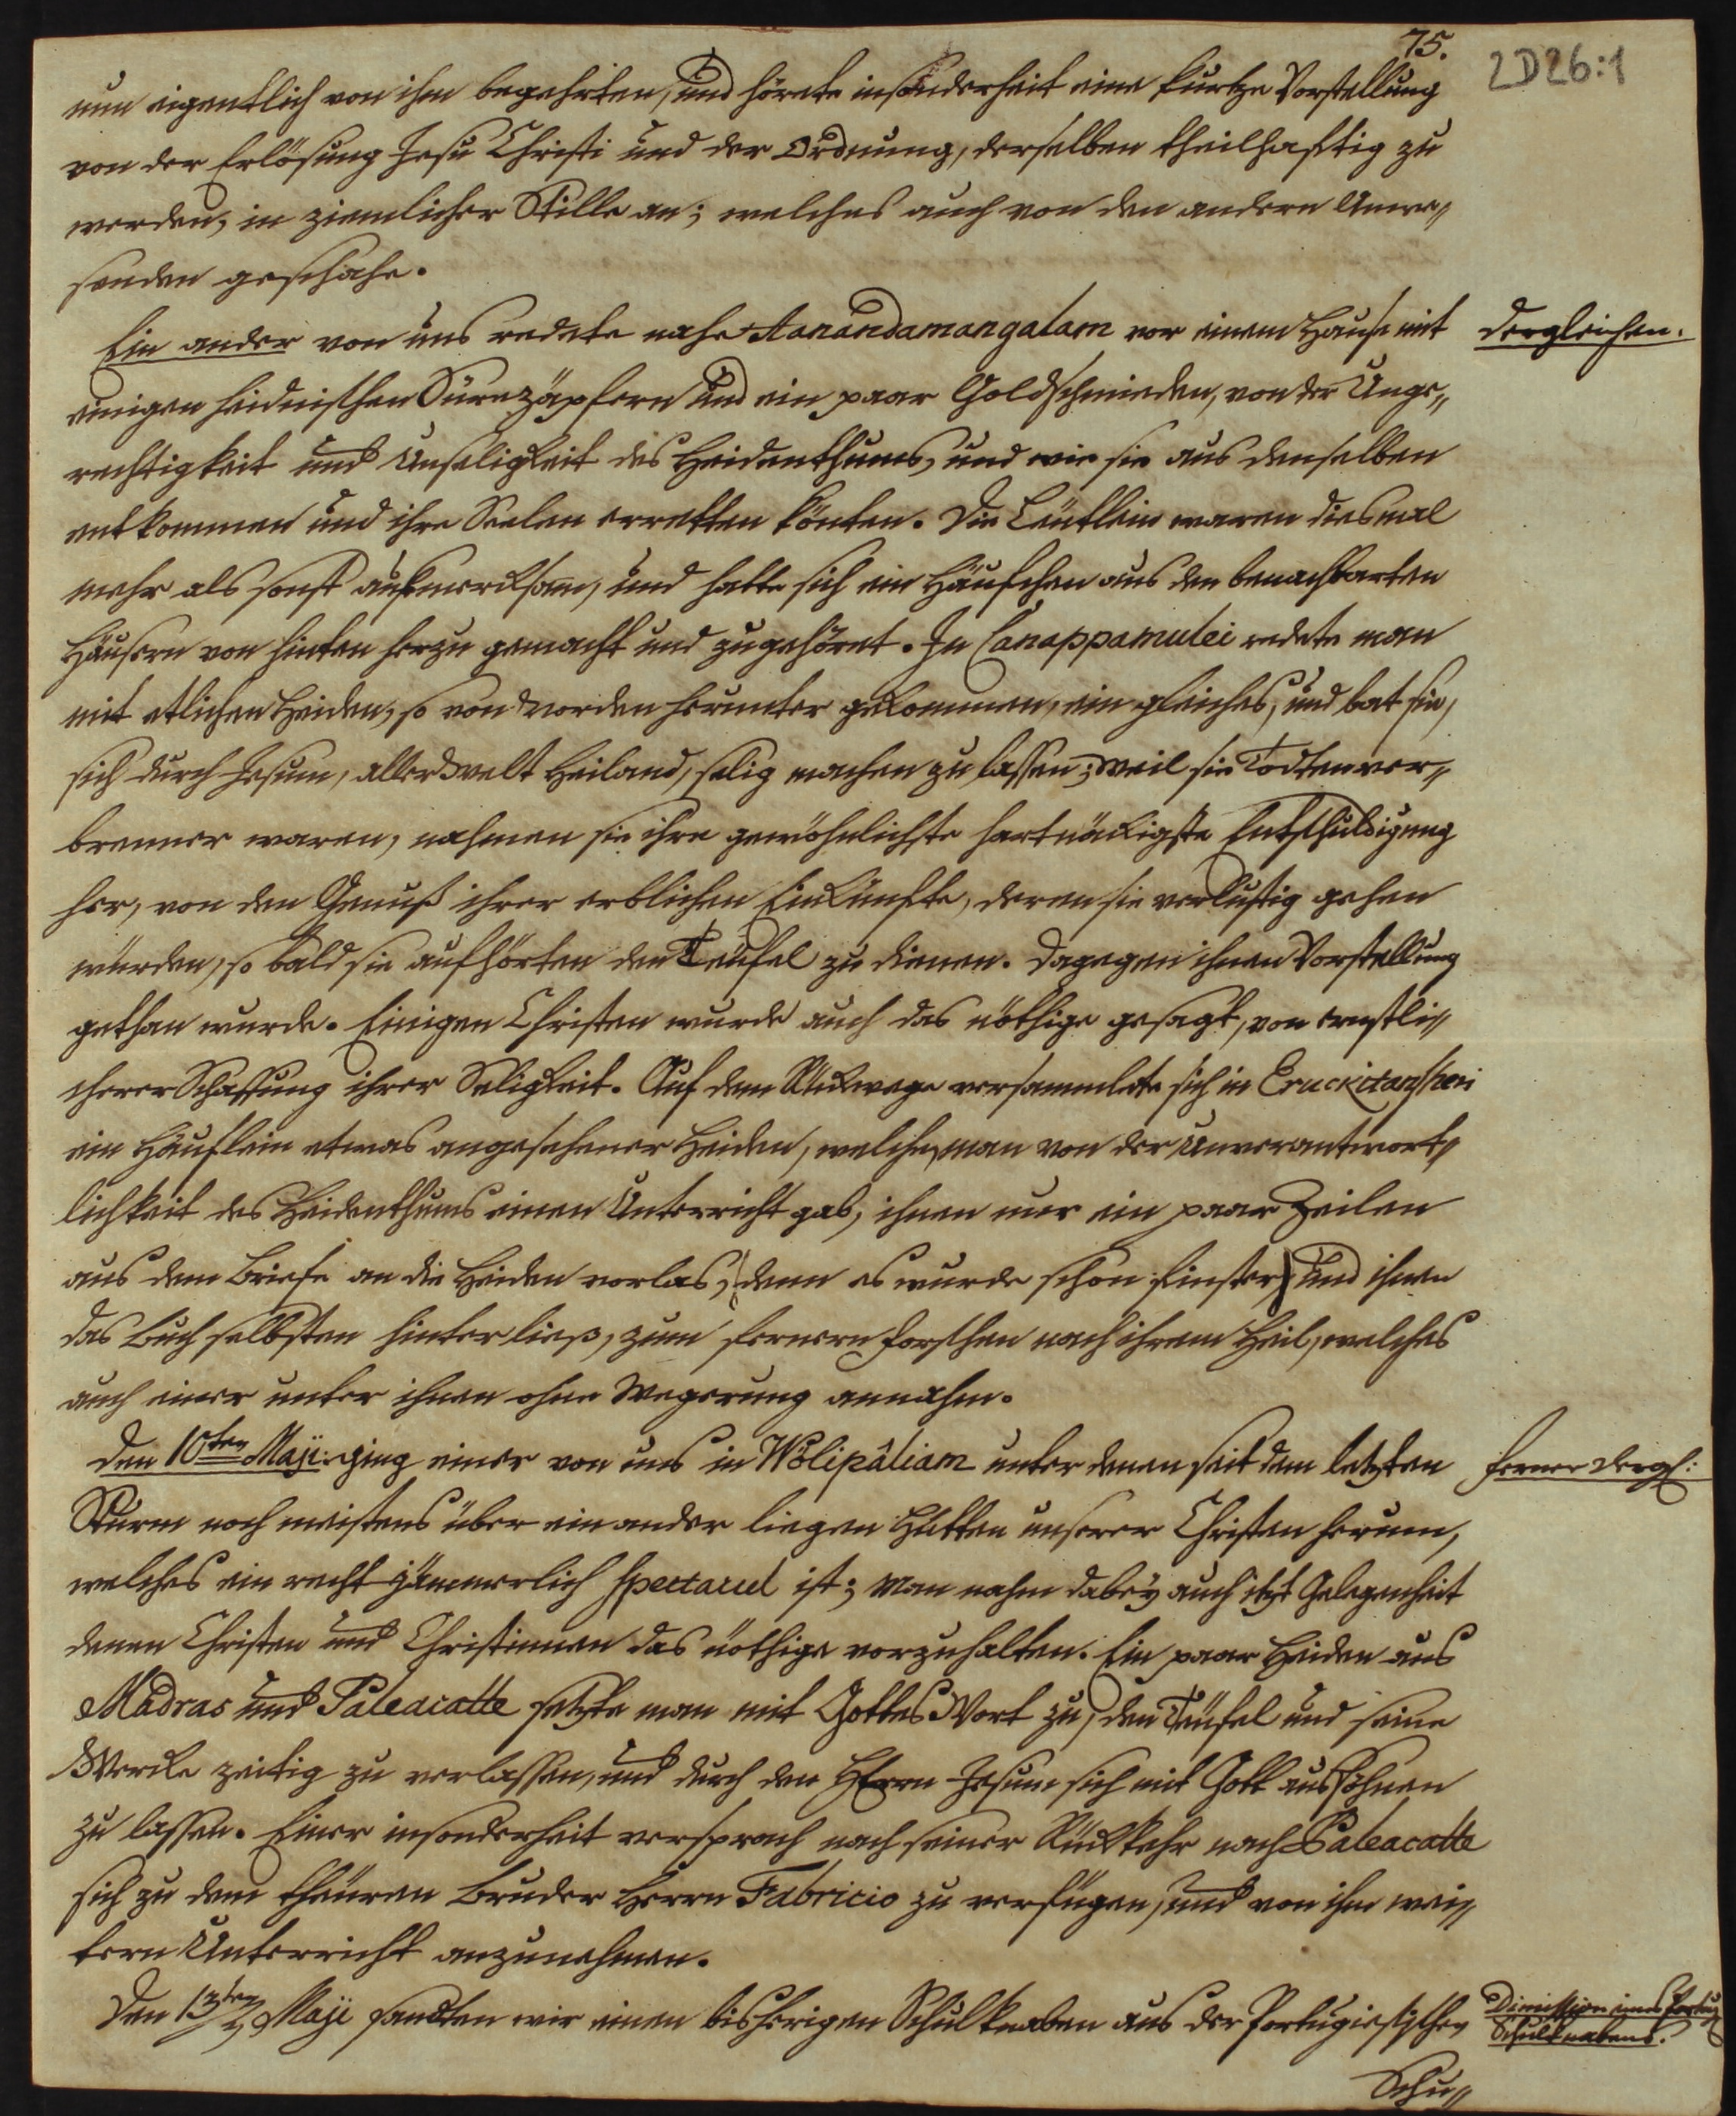 75.
2D26:1
nun eigentlich von ihm begehrten, und hörete insonderheit eine kurtze Vorstellung
von der Erlösung Jesu Christi und der Ordnung, derselben theilhafftig zu
werden, in ziemlicher Stille an; welches auch von den andern Anwe„
senden geschahe.
Ein ander von uns redete nahe Aanandamangalam vor einem Hause mit
dergleichen.
einigen heidnischen Sürezäpfern und ein paar Goldschmieden, von der Unge„
rechtigkeit und Unseligkeit des Heidenthums, und wie sie aus denselben
entkommen und ihre Seelen erretten könten. Die Leutlein waren diesmal
mehr als sonst aufmercksam, und hatte sich ein Häufchen aus den benachbarten
Häusern von hinten herzu gemacht und zugehöret. In Canappamulei redete man
mit etlichen Heiden, so von Norden herunter gekommen, ein gleiches, und bat sie,
sich durch Jesum, aller Welt Heiland, selig machen zu lassen; weil sie Todtenver„
brenner waren, nahmen sie ihre gewöhnlichste hartnäckigste Entschuldigung
her, von den Genuß ihrer erblichen Einkünfte, deren sie verlustig gehen
würden, so bald sie aufhörten den Teufel zu dienen. Dagegen ihnen Vorstellung
gethan wurde. Einigen Christen wurde auch das nöthige gesagt, von ernstli„
cherer Schaffung ihrer Seligkeit. Auf dem Rückwege versammlete sich in Eruckitanscheri
ein Häuflein etwas angesehener Heiden, welchen man von der Unverantwort„
lichkeit des Heidenthums einen Unterricht gab, ihnen nur ein paar Zeilen
aus dem Briefe an die Heiden vorlas, (denn es wurde schon finster) und ihnen
das Buch selbsten hinterließ, zum fernern forschen nach ihrem Heil, welches
auch einer unter ihnen ohne Wegerung annahm.
Den 10ten Maji. ging einer von uns in Wölipâliam unter denen seit dem letzten
ferner dergl:
Sturm noch meistens über einander liegen Hütten unserer Christen herum,
welches ein recht jämmerlich Spectacul ist; Man nahm dabey auch itzt Gelegenheit
denen Christen und Christinnen das nöthige vorzuhalten. Ein paar Heiden aus
Madras und Paleacatte setzte man mit Gottes Wort zu, den Teufel und seine
Wercke zeitig zu verlassen, und durch den HErrn Jesum sich mit Gott aussöhnen
zu lassen. Einer insonderheit versprach nach seiner Rückkehr nach Paleacatte
sich zu dem theuren Bruder Herrn Fabricio zu verfügen, und von ihm wei„
tern Unterricht anzunehmen.
Den 13ten Maji sandten wir einen bisherigen Schulknaben aus der Portugiesischen
Dimission eines Portug.
Schulknabens.
Schu„